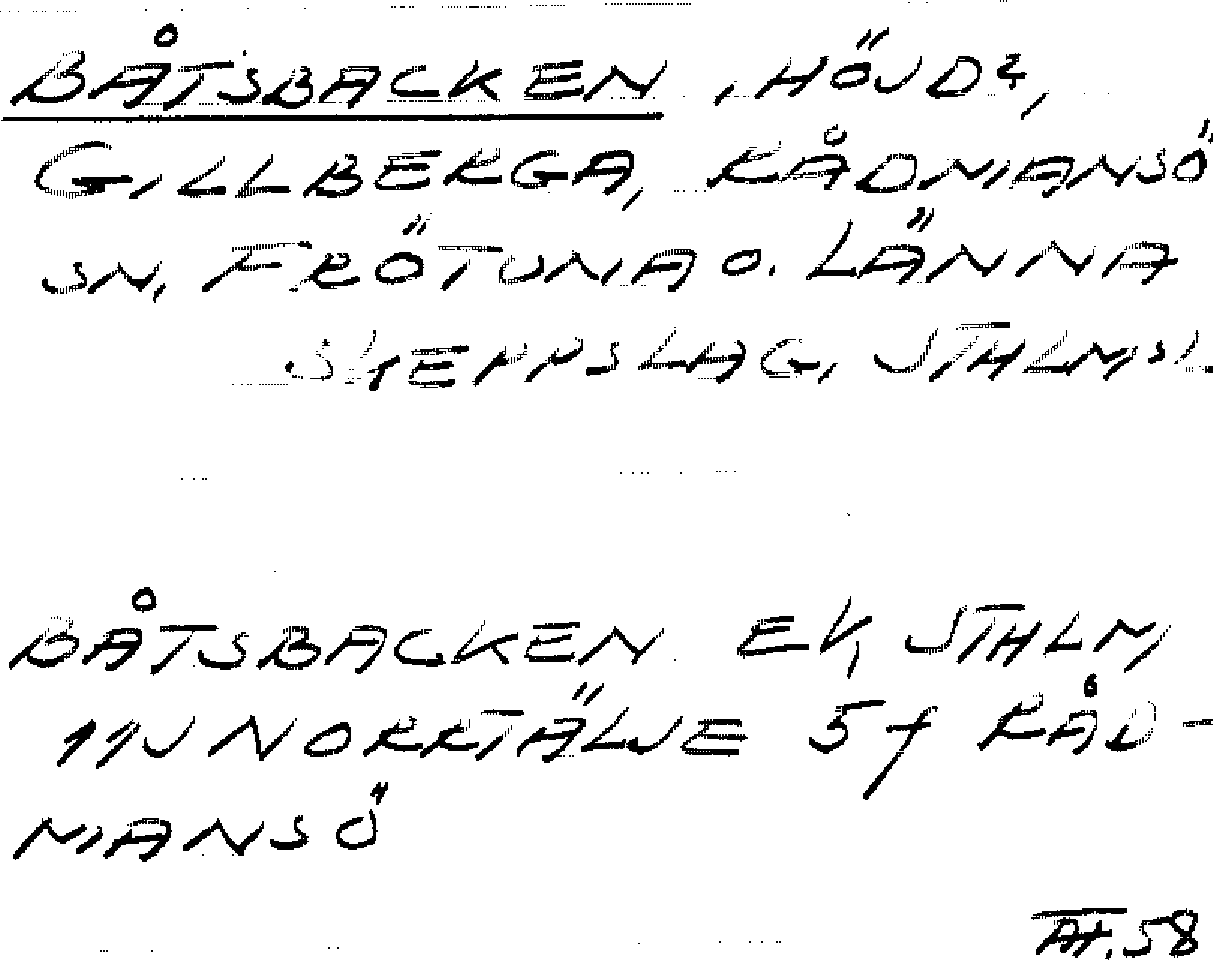 BÅTSBACKEN, HÖJD?,
GILLBERGA, RÅDMANSÖ
SN, FRÖTUNA O. LÄNNA
SKEPPSLAG, STHLMSL.
BÅTSBACKEN EK, STHLM,
11J NORRTÄLJE 5f RÅD-
MANSÖ
58